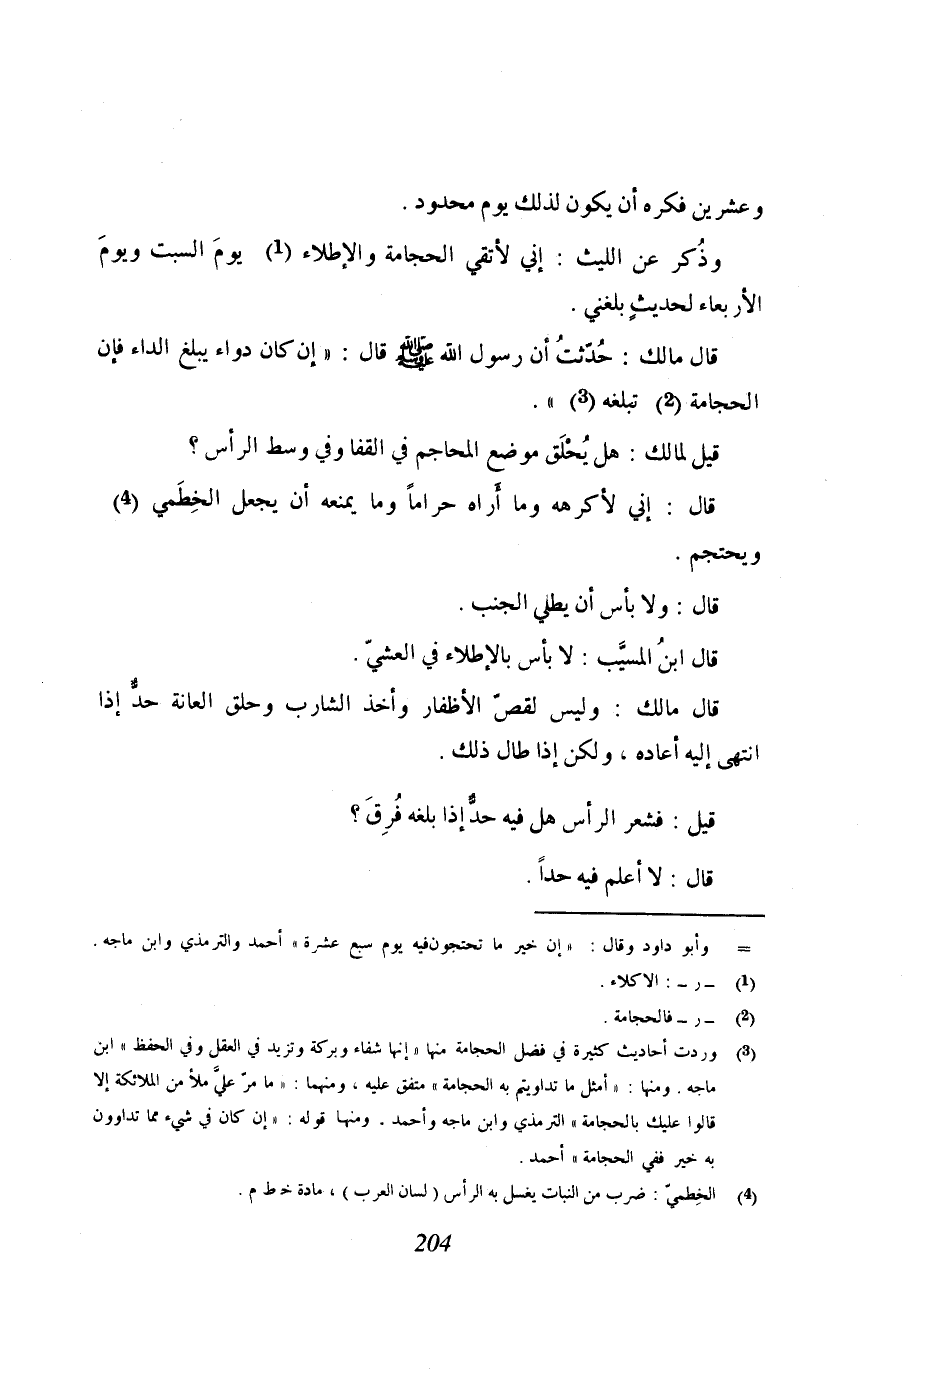 وعشرين فكره أن يكون لذلك يوم محدود .
وذُكر عن الليث : إني لأتقي الحجامة والإطلاء (1) يومَ السبت ويومَ
الأربعاء لحديثٍ بلغني .
قال مالك : حُدّثتُ أن رسول الله ﷺ قال : « إن كان دواء يبلغ الداء فإن
الحجامة (2) تبلغه (3) » .
قيل لمالك : هل يُحْلَق موضع المحاجم في القفا وفي وسط الرأس ؟
قال : إني لأكرهه وما أَراه حراماً وما يمنعه أن يجعل الخِطَمي (4)
ويحتجم .
قال : ولا بأس أن يطلي الجنب .
قال ابنُ المسيَّب : لا بأس بالإطلاء في العشيّ .
قال مالك : وليس لقصّ الأظفار وأخذ الشارب وحلق العانة حدٌّ إذا
انتهى إليه أعاده ، ولكن إذا طال ذلك .
قيل : فشعر الرأس هل فيه حدٌّ إذا بلغه فُرِقَ ؟
قال : لا أعلم فيه حداً .
= وأبو داود وقال : « إن خير ما تحتجون فيه يوم سبع عشرة » أحمد والترمذي وابن ماجه .
(1) – ر – : الاكلاء .
(2) – ر – فالحجامة .
(3) وردت أحاديث كثيرة في فضل الحجامة منها « إنها شفاء وبركة وتزيد في العقل وفي الحفظ » ابن
ماجه . ومنها : « أمثل ما تداويتم به الحجامة » متفق عليه ، ومنهما : « ما مرّ عليَّ ملأ من الملائكة إلا
قالوا عليك بالحجامة » الترمذي وابن ماجه وأحمد . ومنها قوله : « إن كان في شيء مما تداوون
به خير ففي الحجامة » أحمد .
(4) الخِطميّ : ضرب من النبات يغسل به الرأس ( لسان العرب ) ، مادة خ ط م .
204